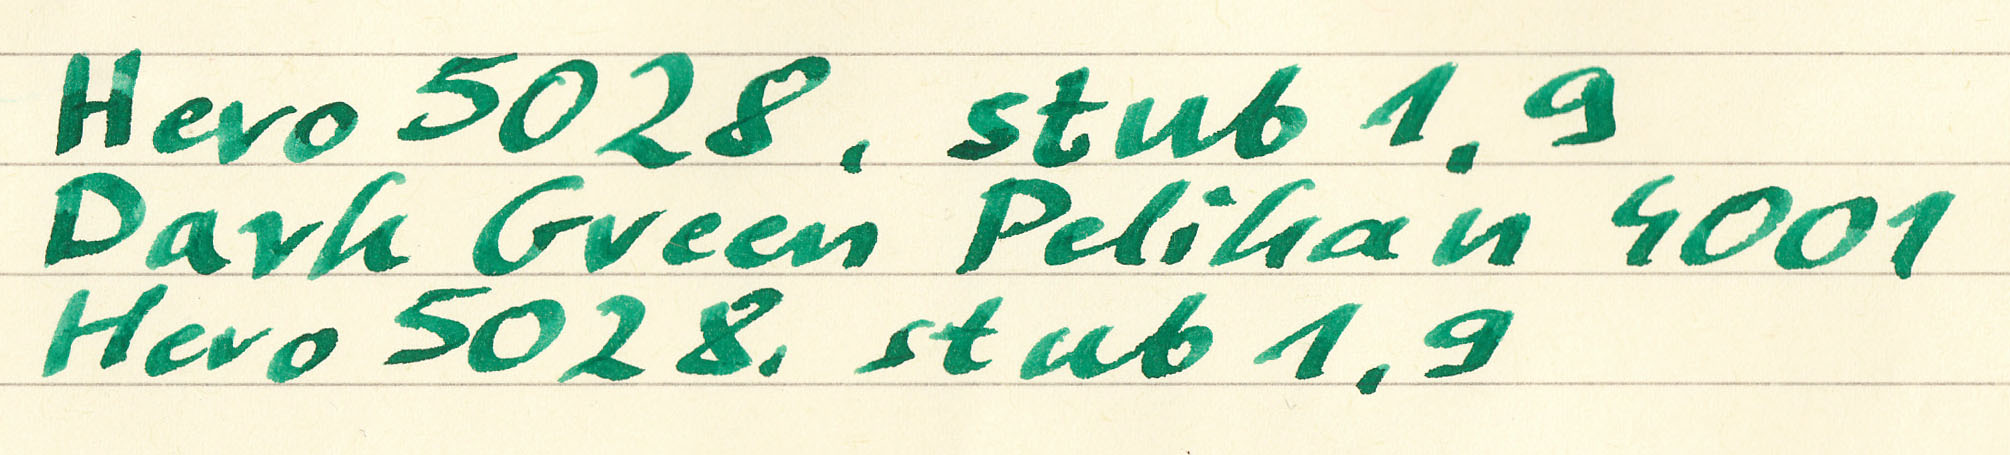 Hero 5028. stub 1.9
Dark Green Pelikan 4001
Hero 5028. stub 1.9